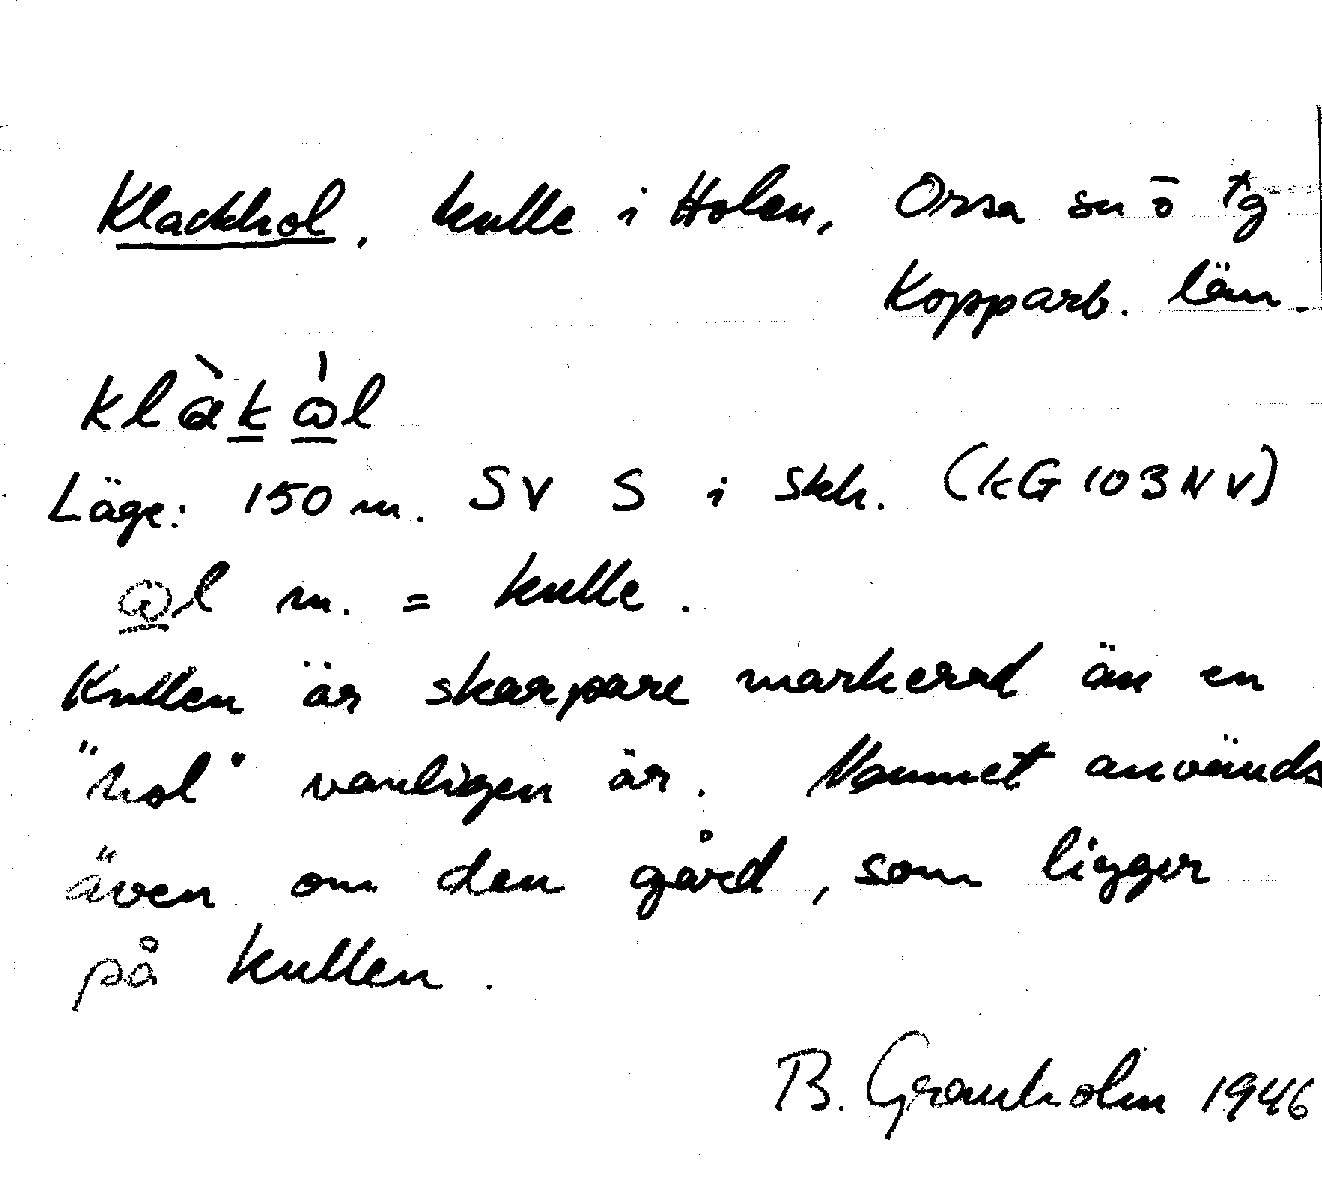 Klackhol, kulle i Holen, Orsa sn ö tg
Kopparb. län.
Läge: 150 m. SV S i skh. (kG 103 NV)
m. = kulle.
Kullen är skarpare markerad än en
"hol" vanligen är. Namnet används
även om den gård, som ligger
på kullen.
B. Granholm 1946